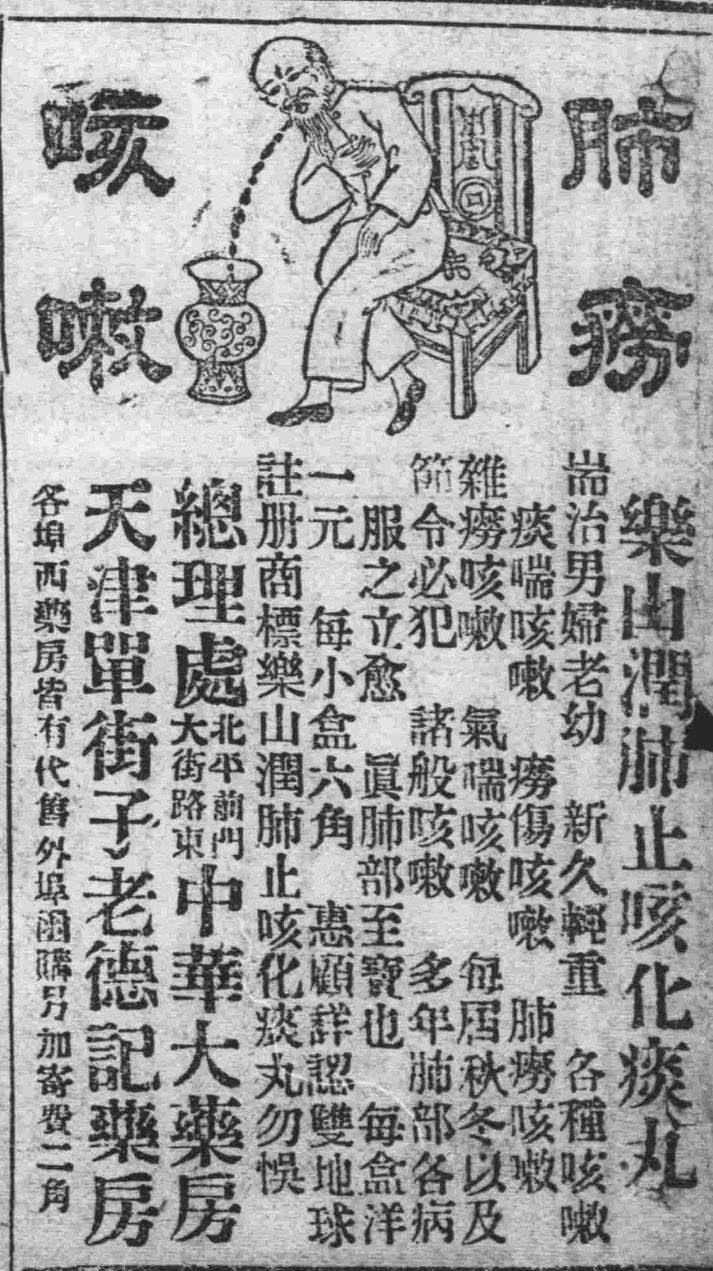 肺癆
咳嗽
樂山潤肺止咳化痰丸
耑治男婦老幼 新久輕重 各種咳嗽
痰喘咳嗽 癆傷咳嗽 肺癆咳嗽
雜癆咳嗽 氣喘咳嗽 每屆秋冬以及
節令必犯 諸般咳嗽 多年肺部各病
服之立愈 眞肺部至寶也 每盒洋
一元 每小盒六角 惠顧詳認雙地球
註册商標樂山潤肺止咳化痰丸勿悞
總理處北平前門大街路東中華大藥房
天津單街子老德記藥房
各埠西藥房皆有代售外埠函購另加寄費二角